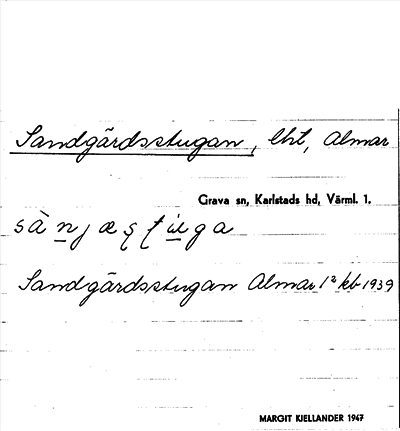 Sandgärdsstugan, lht, Almar
Grava sn, Karlstads hd, Värml. l.
Sandgärdsstugan Almar 1² kb 1939
MARGIT KJELLANDER 1947